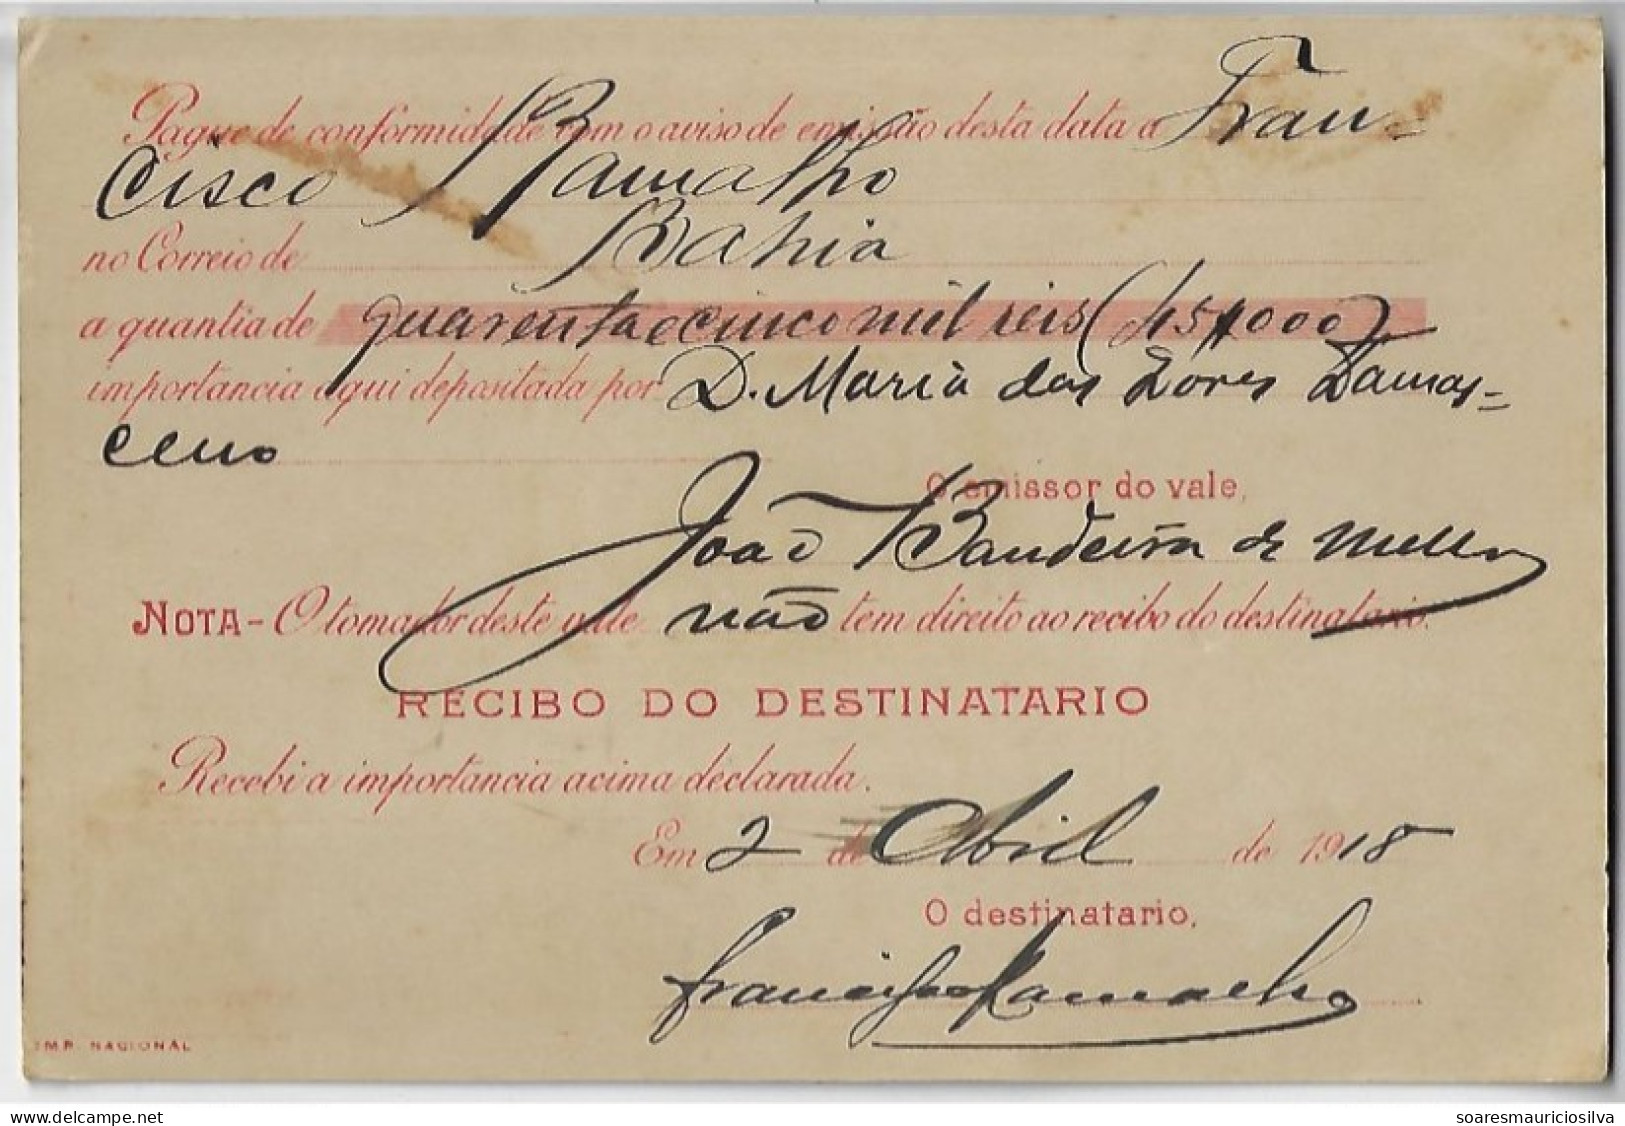 Pague de conformidade com o aviso de emissão desta data a Fran-
cisco Ramalho
no Correio de Bahia
a quantia de quarenta e cinco mil reis (45$000)
importancia aqui depositada por D. Maria das Dores Damas-
ceno
O emissor do vale,
João Bandeira de Mello
NOTA - O tomador deste vale não tem direito ao recibo do destinatario.
RECIBO DO DESTINATARIO
Recebi a importancia acima declarada.
Em 2 de Abril de 1918
O destinatario,
Francisco Ramalho
IMP. NACIONAL
www.delcampe.net
soaresmauriciosilva